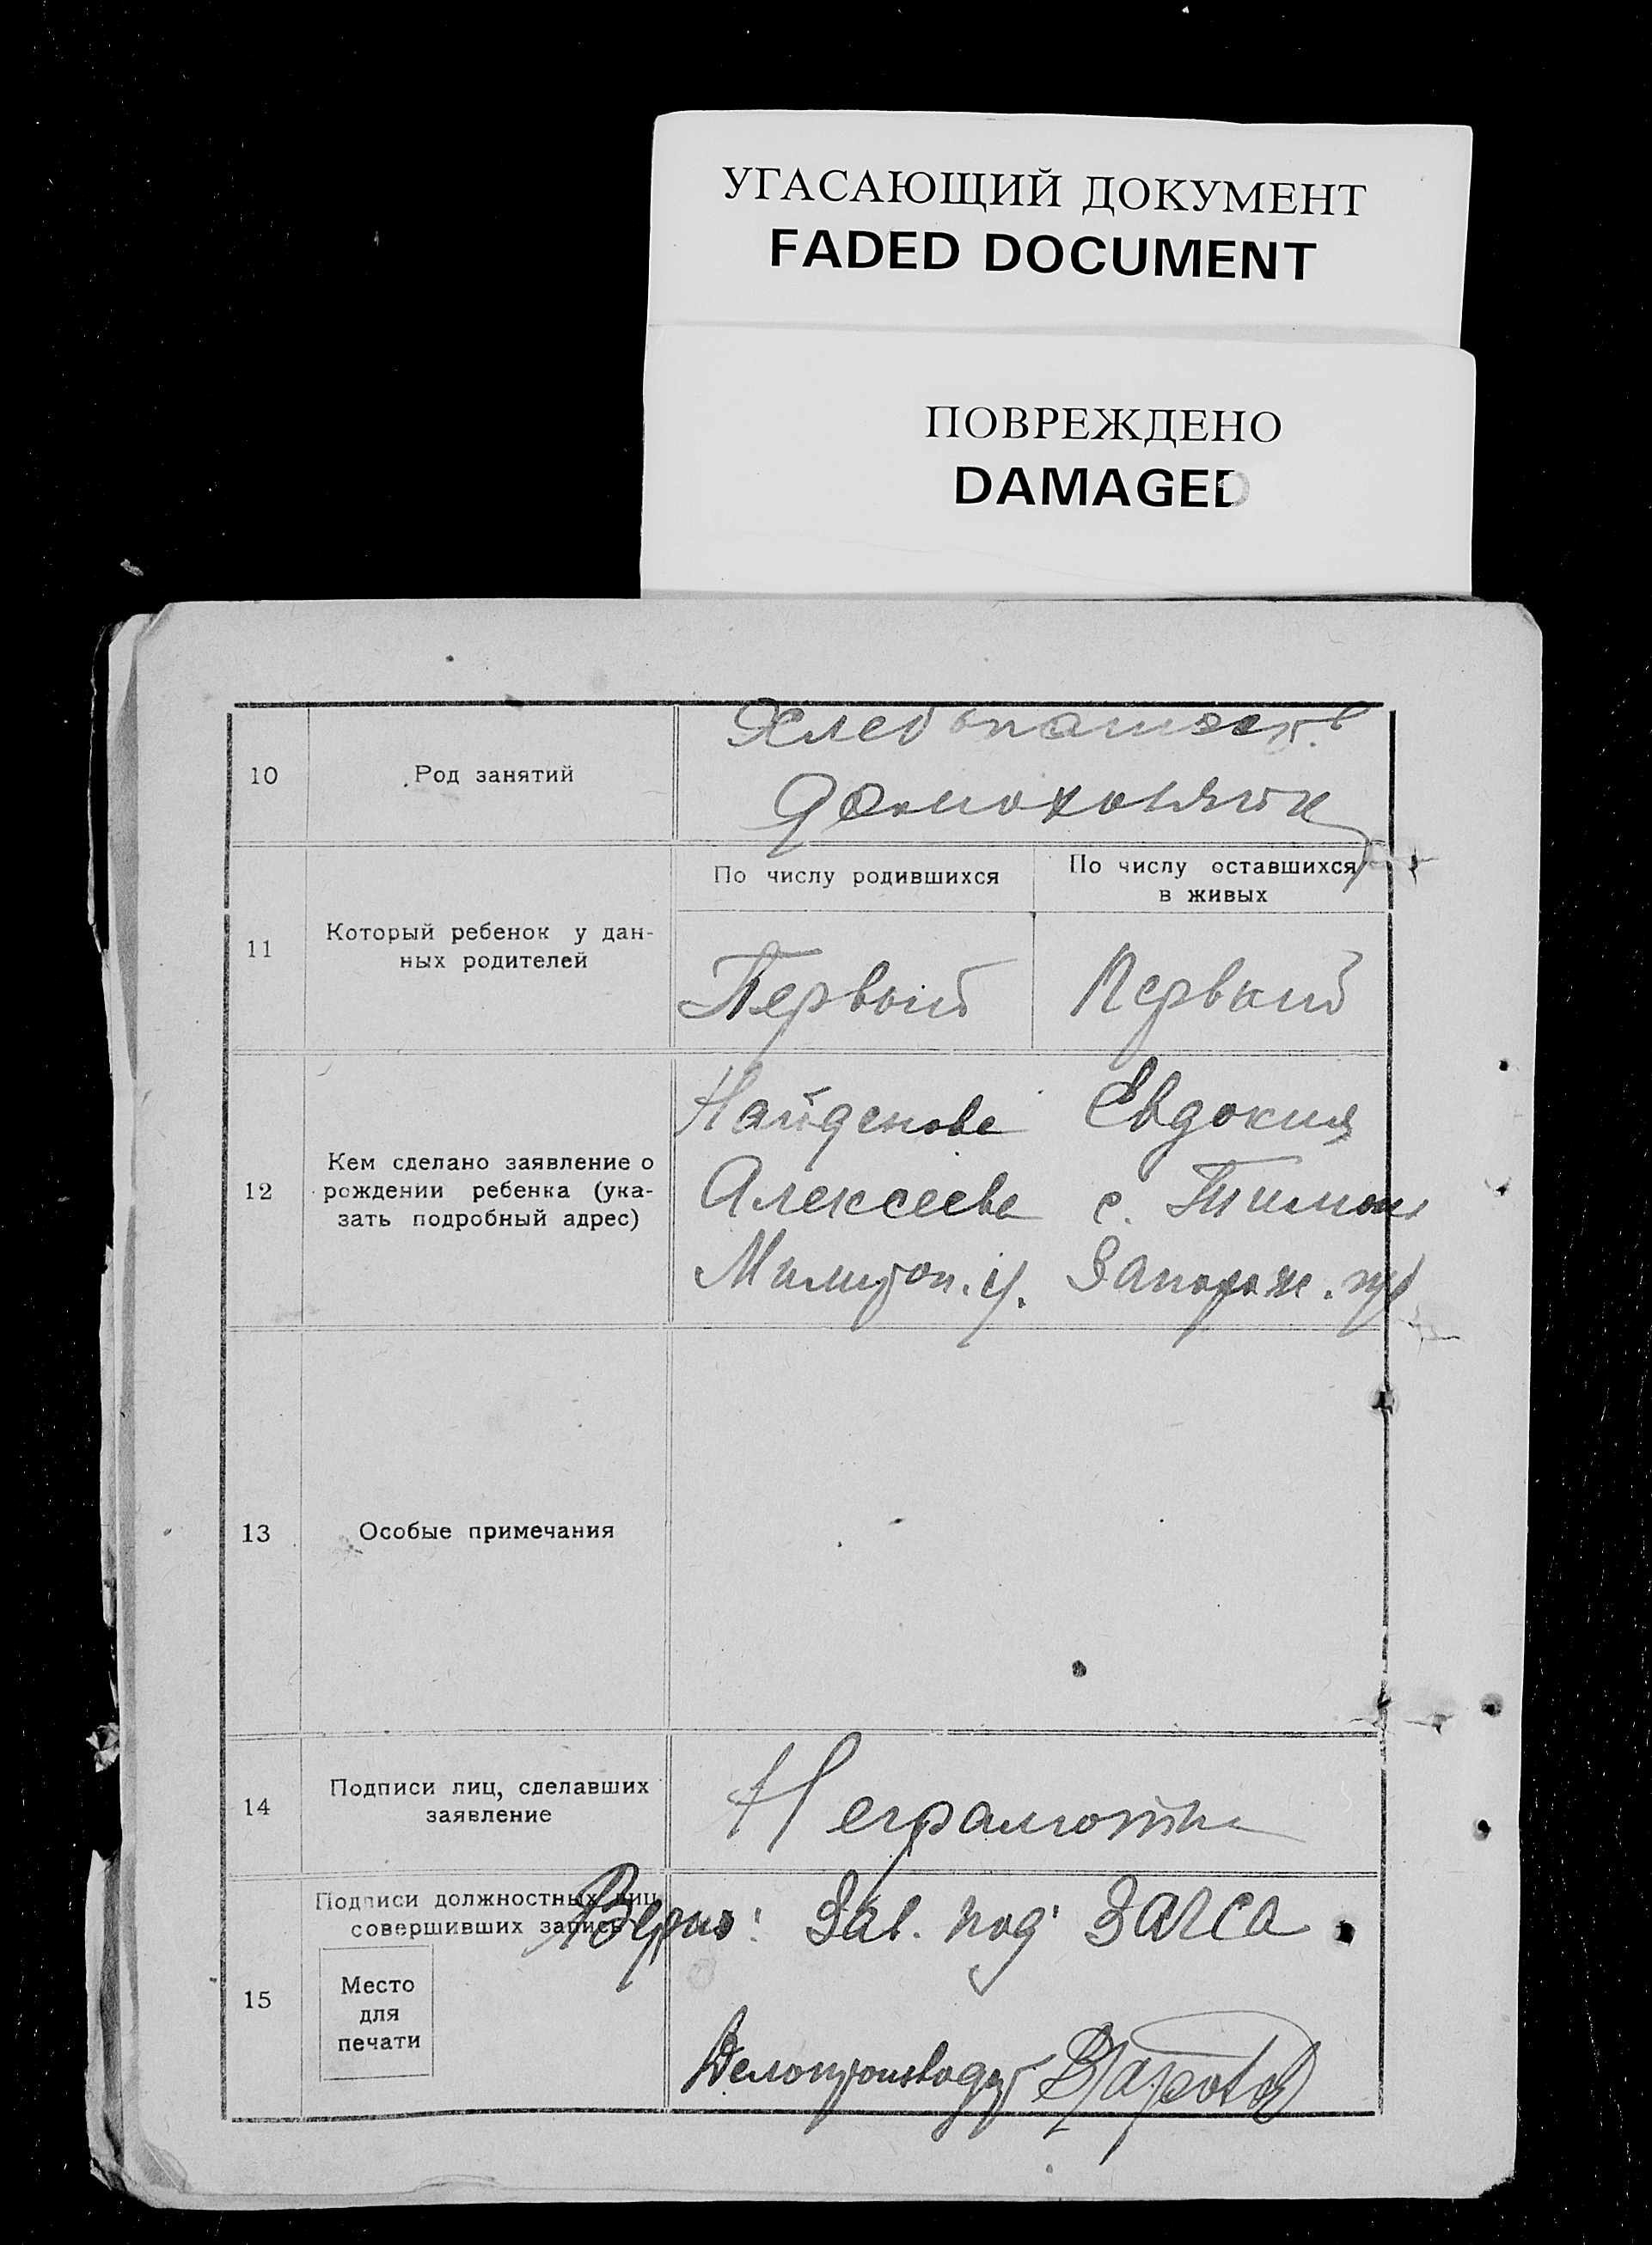 УГАСАЮЩИЙ ДОКУМЕНТ
FADED DOCUMENT
ПОВРЕЖДЕНО
DAMAGED
10
Род занятий
11
Который ребенок у дан-
ных родителей
По числу родившихся
По числу оставшихся
в живых
Первый
Первый
12
Кем сделано заявление о
рождении ребенка (ука-
зать подробный адрес)
Найденова Евдокия
Алексеева с.
Запорож.
13
Особые примечания
14
Подписи лиц, сделавших
заявление
Неграмотна
15
Подписи должностных лиц,
совершивших запись
Место
для
печати
Верно: Зав. под ЗАГСа
Делопроизводит